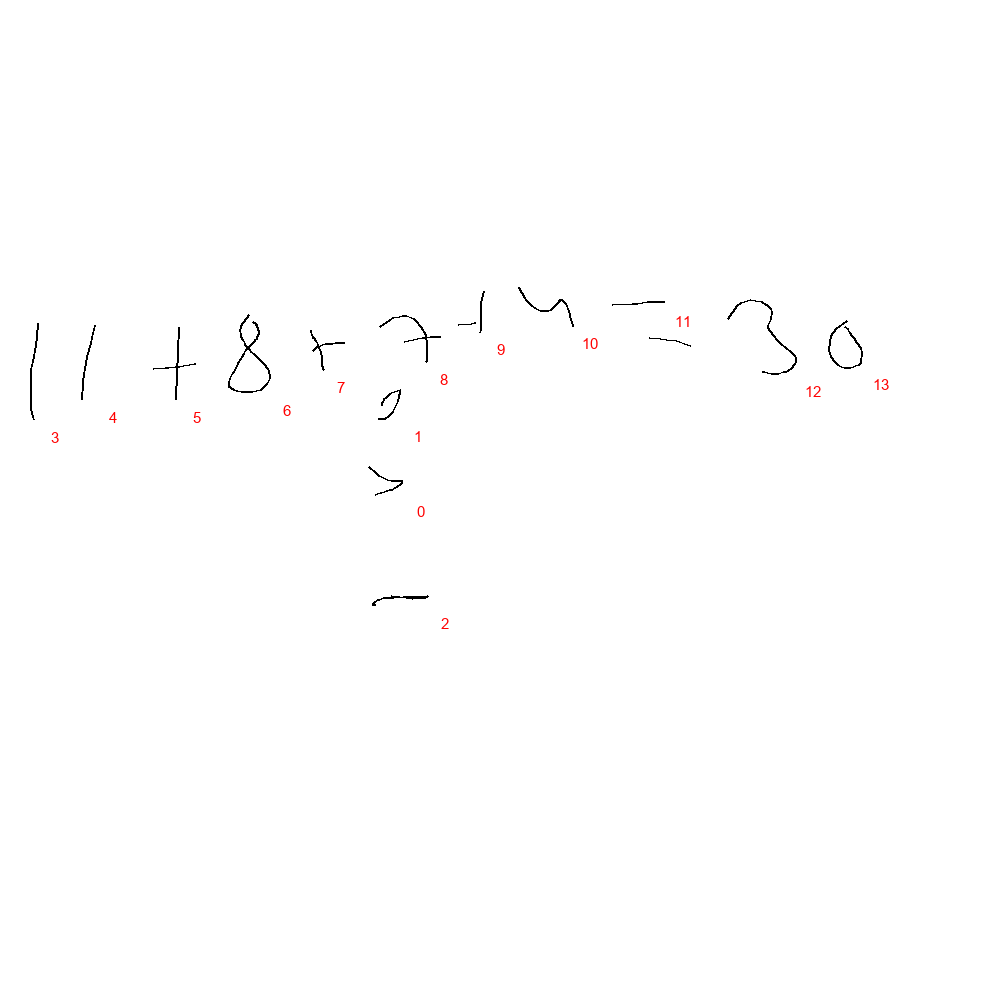 11 + 8 + 7 + 4 = 30
3 4 5 6 7 8 9 10 11 12 13
1
> 0
— 2